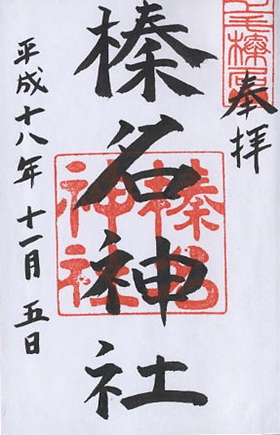 奉拝
榛名神社
平成十八年十一月五日
榛名神社